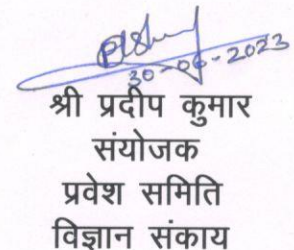 30-06-2023
श्री प्रदीप कुमार
संयोजक
प्रवेश समिति
विज्ञान संकाय